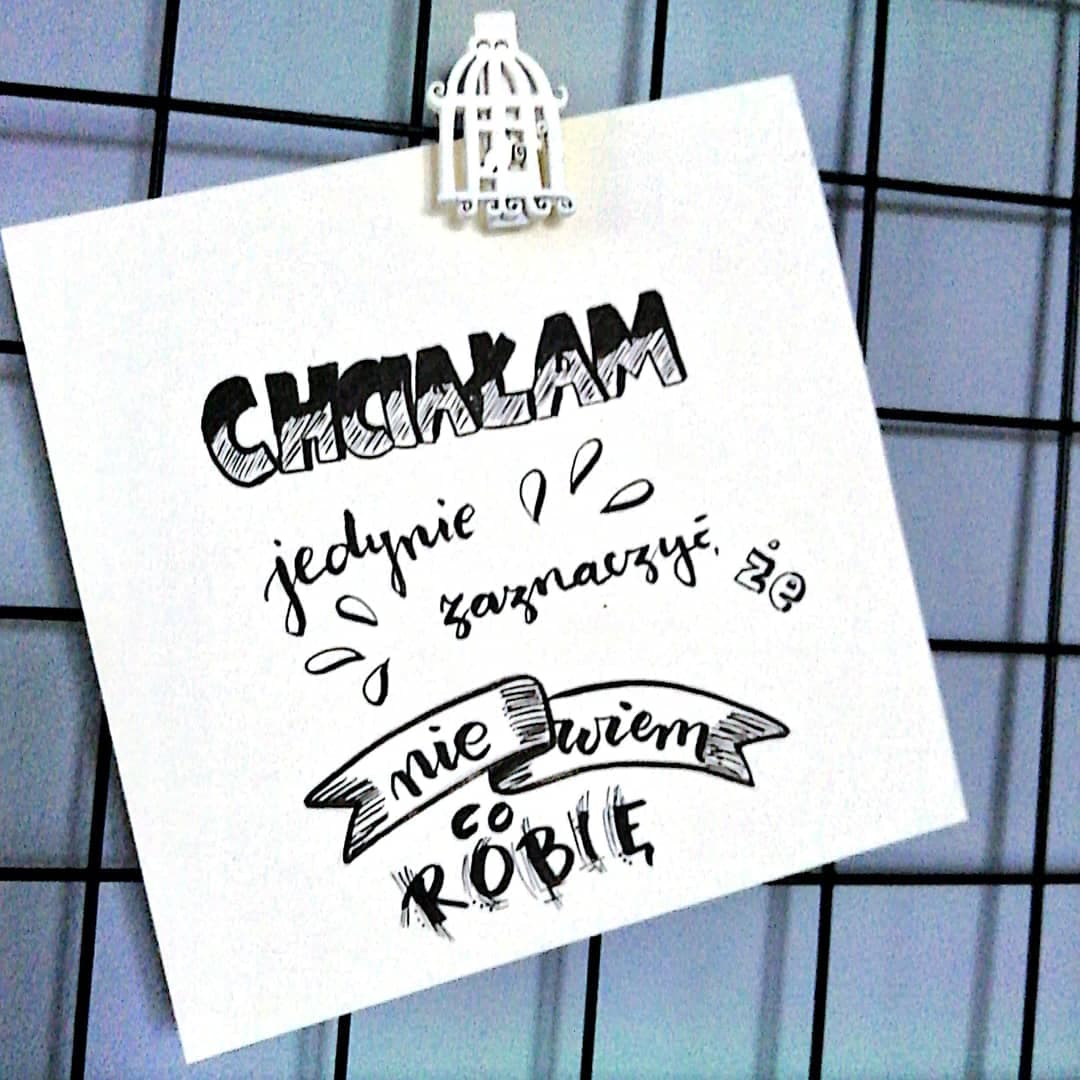 CHCIAŁAM
jedynie
zaznaczyć, że
nie wiem
co
ROBIĘ